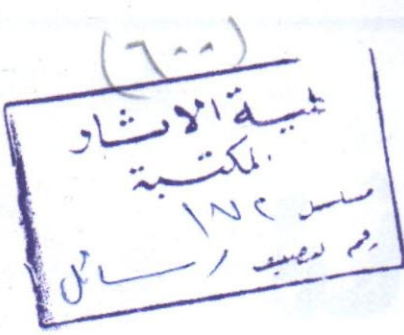 (٦٠٠)
كلية الاثار
المكتبة
مسلسل ١٨٢
رقم تصنيف / رسائل